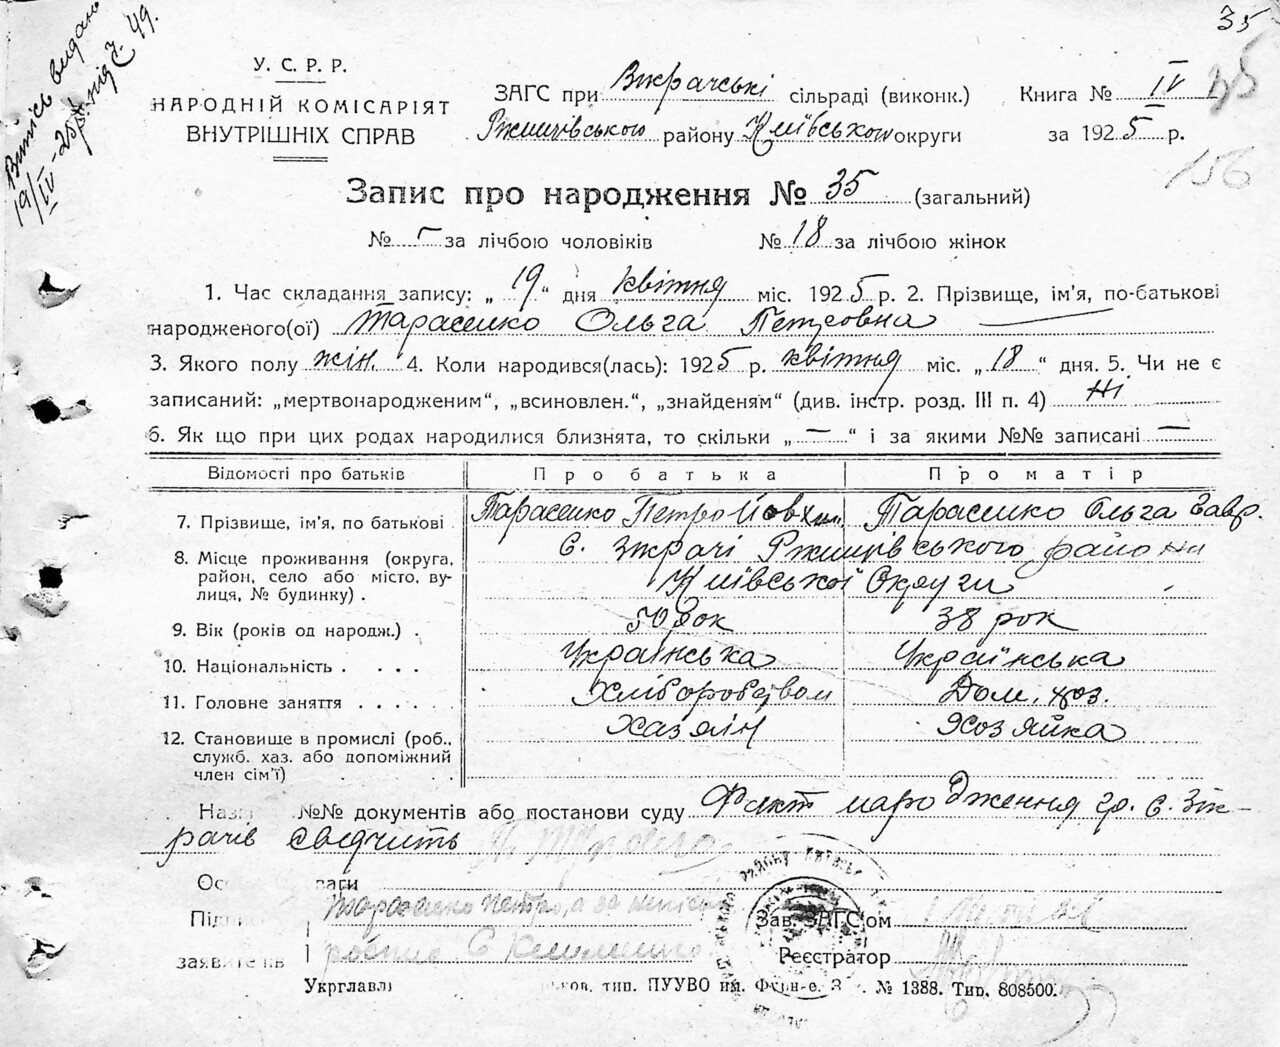 Випісь видано
19/IV-25р. під Ч. 49.
35
35
156
У. С. Р. Р.
НАРОДНІЙ КОМІСАРІЯТ
ВНУТРІШНІХ СПРАВ
ЗАГС при Зікрачські сільраді (виконк.) Книга № IV
Ржищівського району Київської округи за 1925 р.
Запис про народження № 35 (загальний)
№ - за лічбою чоловіків № 18 за лічбою жінок
1. Час складання запису: „ 19 “ дня квітня міс. 1925 р. 2. Прізвище, ім'я, по-батькові
народженого(ої) Тарасенко Ольга Петровна
3. Якого полу жін. 4. Коли народився(лась): 1925 р. квітня міс. „ 18 “ дня. 5. Чи не є
записаний: „мертвонародженим“, „всиновлен.“, „знайденям“ (див. інстр. розд. III п. 4) Ні
6. Як що при цих родах народилися близнята, то скільки „ — “ і за якими №№ записані —
Відомості про батьків Про батька Про матір
7. Прізвище, ім'я, по батькові Тарасенко Петро Йовхим. Тарасенко Ольга Гавр.
8. Місце проживання (округа, район, село або місто, вулиця, № будинку) . С. Зікрачі Ржищівського району
Київської Округи
9. Вік (років од народж.) . 50 рок 38 рок
10. Національність . . . . Українська Українська
11. Головне заняття . . . . . . Хліборобством Дом. хоз.
12. Становище в промислі (роб., служб. хаз. або допоміжний член сім'ї) Хазяїн Хозяйка
Назв №№ документів або постанови суду Факт народження гр. С. Зік-
рачів свідчить
Ос ваги
Підпи Тарасенко Петро, а за
заявителів роспис. Зав. ЗАГС'ом
Реєстратор
Укрглавл ков. тип. ПУУВО ім. Фрунзе. З № 1388. Тир. 808500.